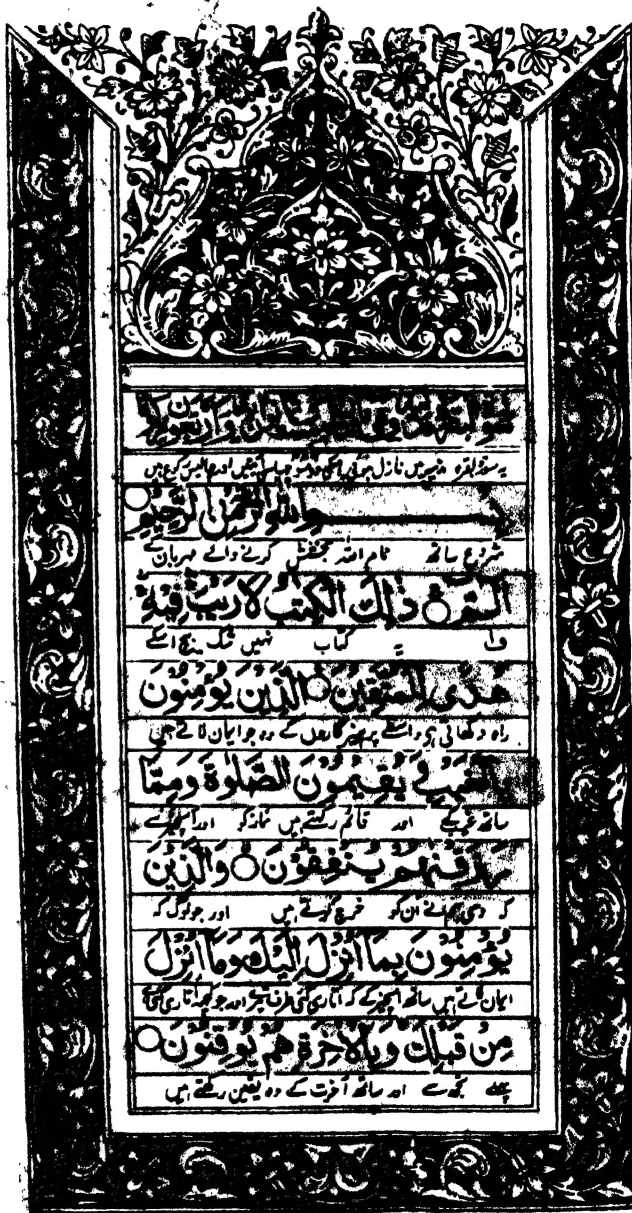 یہ سورۃ بقرہ مدینہ میں نازل ہوئی
الله الرحمن الرحيم
شروع ساتھ نام اللہ بخشش کرنے والے مہربان کے
الٓمّٓ ذٰلِكَ الْكِتٰبُ لَا رَيْبَ فِيْهِ
ف۱ یہ کتاب نہیں شک بیچ اسکے
هُدًى لِّلْمُتَّقِيْنَ الَّذِيْنَ يُؤْمِنُوْنَ
راہ دکھاتی ہی واسطے پرہیزگاروں کے وہ جو ایمان لاتے ہیں
بِالْغَيْبِ وَيُقِيْمُوْنَ الصَّلٰوةَ وَمِمَّا
ساتھ غیب کے اور قائم رکھتے ہیں نماز کو اور
رَزَقْنٰهُمْ يُنْفِقُوْنَ وَالَّذِيْنَ
کہ دی ہم نے اُن کو خرچ کرتے ہیں اور جو لوگ کہ
يُؤْمِنُوْنَ بِمَآ اُنْزِلَ اِلَيْكَ وَمَآ اُنْزِلَ
ایمان لاتے ہیں ساتھ اسچیز کے کہ اتاری گئی طرف تیرے اور جو کچھ اتاری گئی ہے
مِنْ قَبْلِكَ وَبِالْاٰخِرَةِ هُمْ يُوْقِنُوْنَ
پہلے تجھ سے اور ساتھ آخرت کے وہ یقین رکھتے ہیں